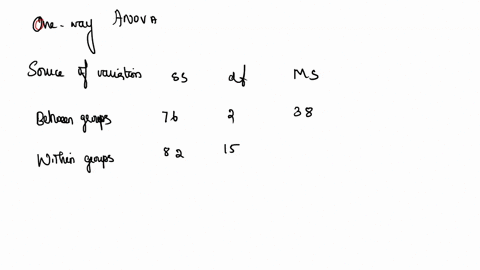 One-way ANOVA
Source of variation SS df MS
Between groups 76 2 38
Within groups 82 15